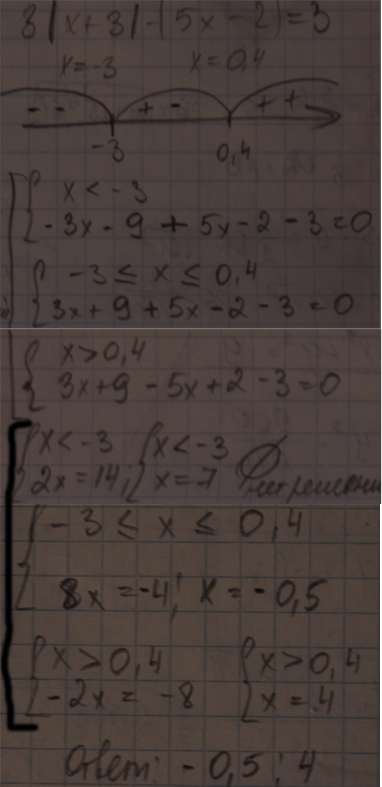 3|x+3|-|5x-2|=3
x=-3 x=0,4
- - + - + +
-3 0,4
x < -3
-3x-9+5x-2-3=0
-3 ≤ x ≤ 0,4
3x+9+5x-2-3=0
x>0,4
3x+9-5x+2-3=0
x<-3 x<-3
2x=14; x=7 ∅ нет решени
-3 ≤ x ≤ 0,4
8x=-4; x=-0,5
x>0,4 x>0,4
-2x=-8 x=4
Ответ: -0,5; 4